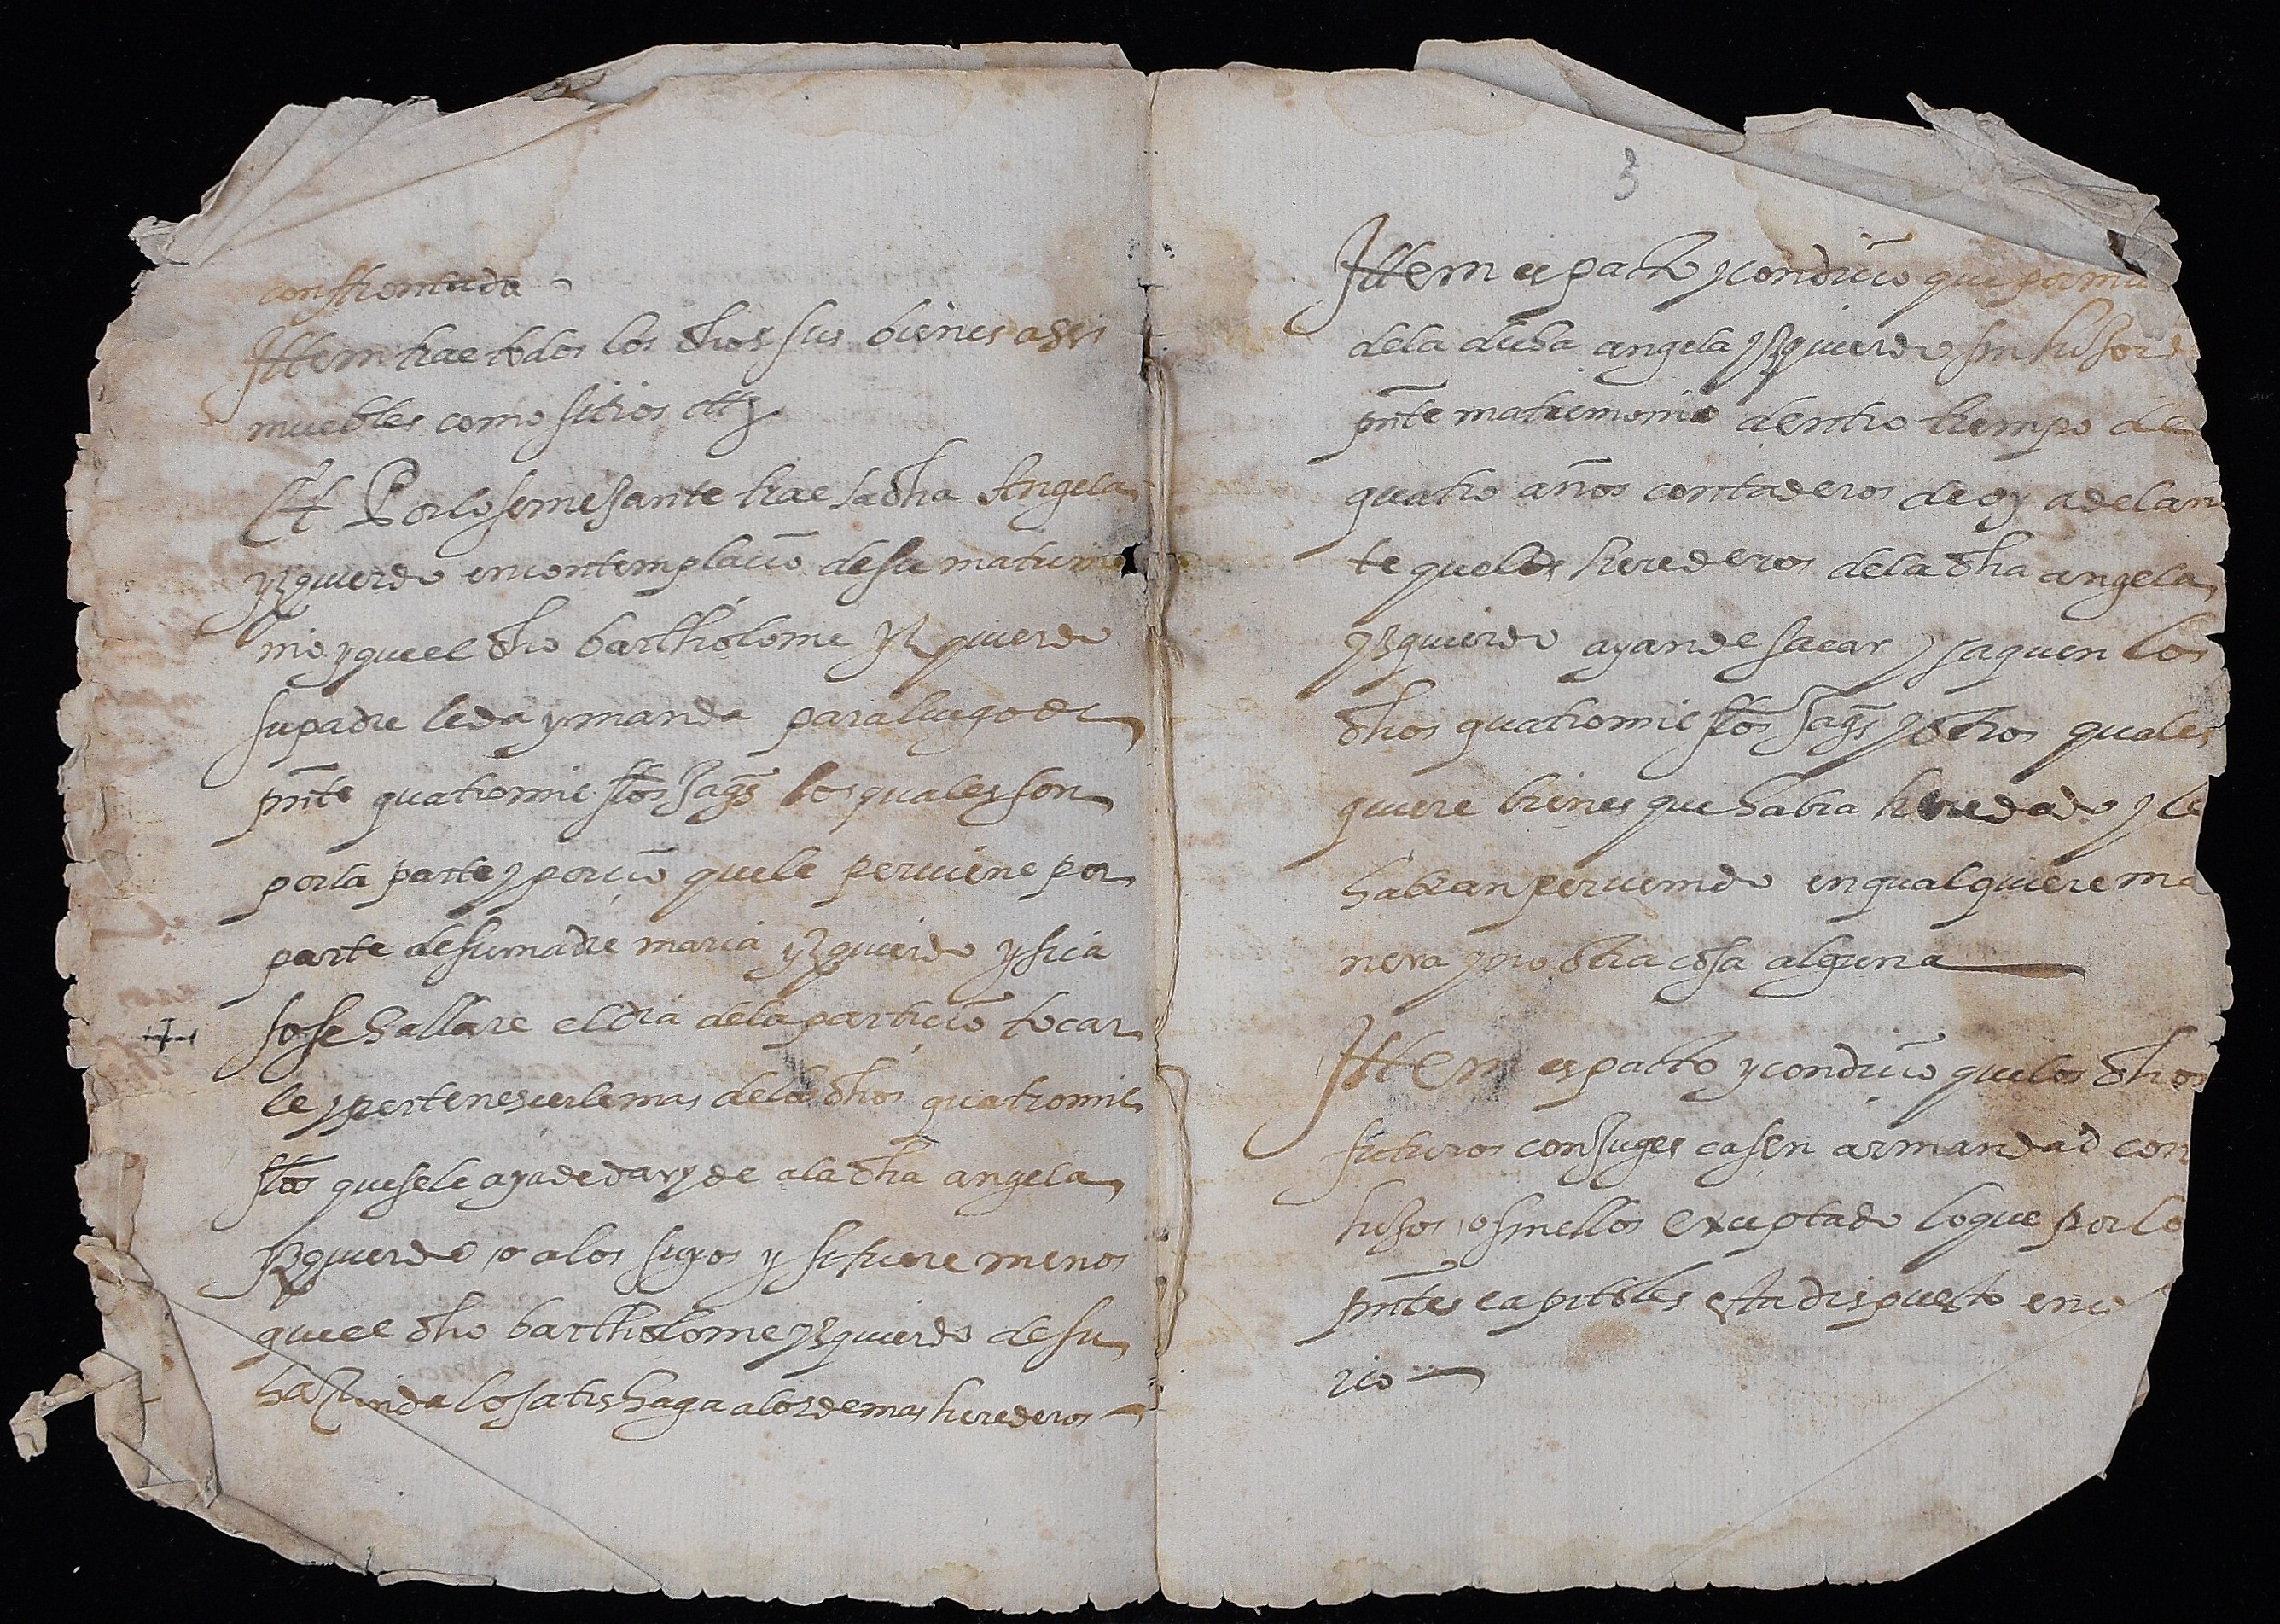 confrontada
Ittem trae todos los dhos sus bienes assi
muebles como sitios ettz
Et Por lo semejante trae la dha Angela
yzquierdo en contemplacio de su matrimo
nio y que el dho bartholome yzquierdo
su padre le da y manda para luego de
pnte quatro mil sſos Jaqs los quales son
por la parte y porcio que le perviene por
parte de su madre maria yzquierdo y si a
so se hallare el dia de la particio tocar
le y pertenescerle mas de los dhos quatro mil
sſos que se le aya de dar y de a la dha angela
yzquierdo o a los suyos y si fuere menos
que el dho bartholome yzquierdo de su
hazienda lo satishaga a los demas herederos
3
Ittem es patto y condicio que por mu
de la dicha angela yzquierdo sin hijos d
pnte matrimonio dentro tiempo de
quatro años contaderos de oy adelan
te que los herederos de la dha angela
yzquierdo ayan de sacar y saquen los
dhos quatro mil sſos Jaqs y otros quales
quiere bienes que habra heredado y le
habran pervenido en qualquiere ma
nera y no otra cosa alguna
Ittem es patto y condicio que los dhos
futuros conjuges casen a armandad con
hijos o sin ellos exceptado lo que por lo
pntes capitoles esta dispuesto en c
rio